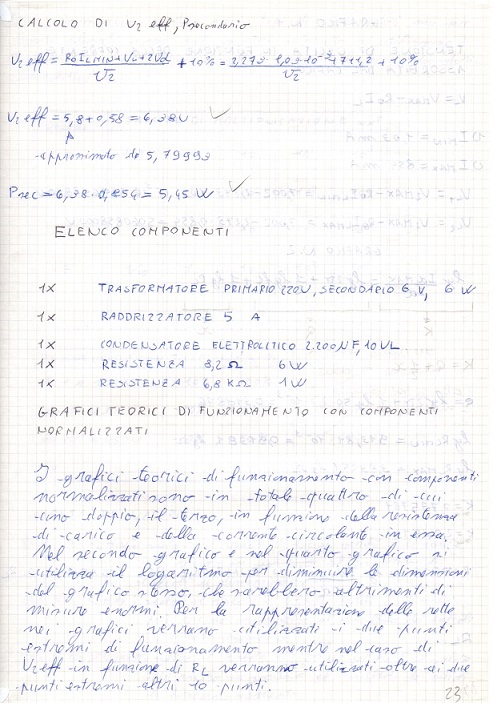 CALCOLO DI V2 eff, Psecondario
V2 eff = (R0 IL MIN + VL + 2Vd)/√2 + 10% = (2,273 · 1,03 · 10⁻³ + 7 + 1,2)/√2 + 10%
V2 eff = 5,8 + 0,58 = 6,38V
approssimato da 5,79993
Psec = 6,38 · 0,854 = 5,45 W
ELENCO COMPONENTI
1X TRASFORMATORE PRIMARIO 220V, SECONDARIO 6 V, 6 W
1X RADDRIZZATORE 5 A
1X CONDENSATORE ELETTROLITICO 2.200µF, 10VL
1X RESISTENZA 8,2 Ω 6W
1X RESISTENZA 6,8 KΩ 1W
GRAFICI TEORICI DI FUNZIONAMENTO CON COMPONENTI
NORMALIZZATI
I grafici teorici di funzionamento con componenti
normalizzati sono in totale quattro di cui
uno doppio, il terzo, in funzione della resistenza
di carico e della corrente circolante in essa.
Nel secondo grafico e nel quarto grafico si
utilizza il logaritmo per diminuire le dimensioni
del grafico stesso, che sarebbero altrimenti di
misure enormi. Per la rappresentazione delle rette
nei grafici verrano utilizzati i due punti
estremi di funzionamento mentre nel caso di
V2 eff in funzione di RL verranno utilizzati oltre ai due
punti estremi altri 10 punti.
23